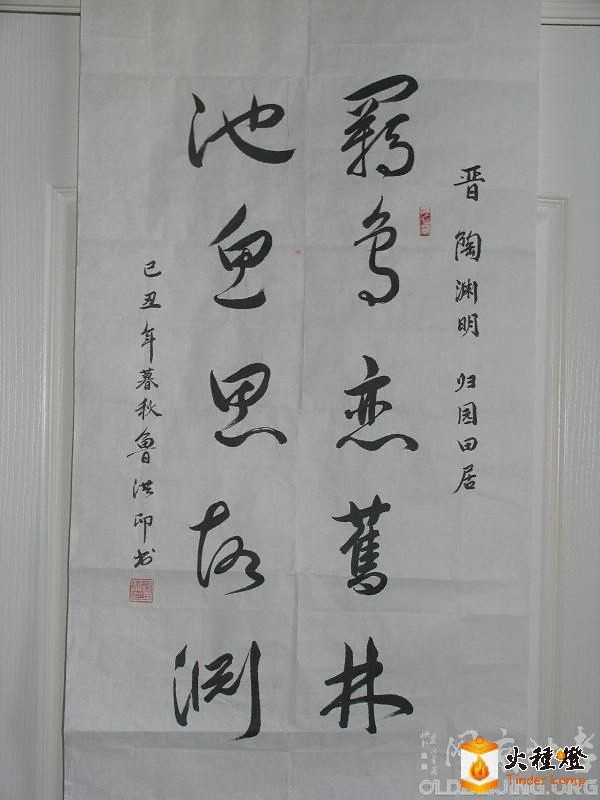 晋 陶渊明 归园田居
羁鸟恋舊林
池鱼思故渊
己丑年暮秋鲁洪印书
火種燈
Tinder Lamp
OLDBEIJING.ORG